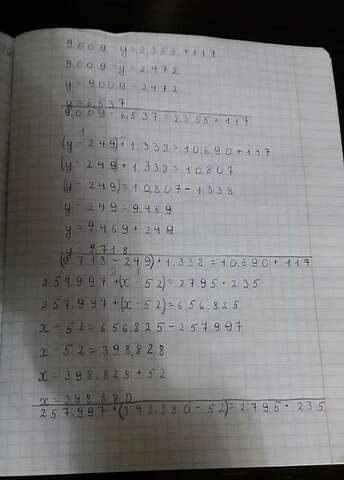 9.009 - y = 2.355 + 117
9.009 - y = 2.472
y = 9.009 - 2472
y = 6.537
9.009 - 6.537 = 2355 + 117
(y - 249) + 1.338 = 10.690 + 117
(y - 249) + 1.338 = 10.807
(y - 249) = 10.807 - 1.338
y - 249 = 9.469
y = 9469 + 249
y = 9.718
(9.718 - 249) + 1.338 = 10.690 + 117
257.997 + (x - 52) = 2795 · 235
257.997 + (x - 52) = 656.825
x - 52 = 656.825 - 257.997
x - 52 = 398.828
x = 398.828 + 52
x = 398.880
257.997 + (398.880 - 52) = 2795 · 235